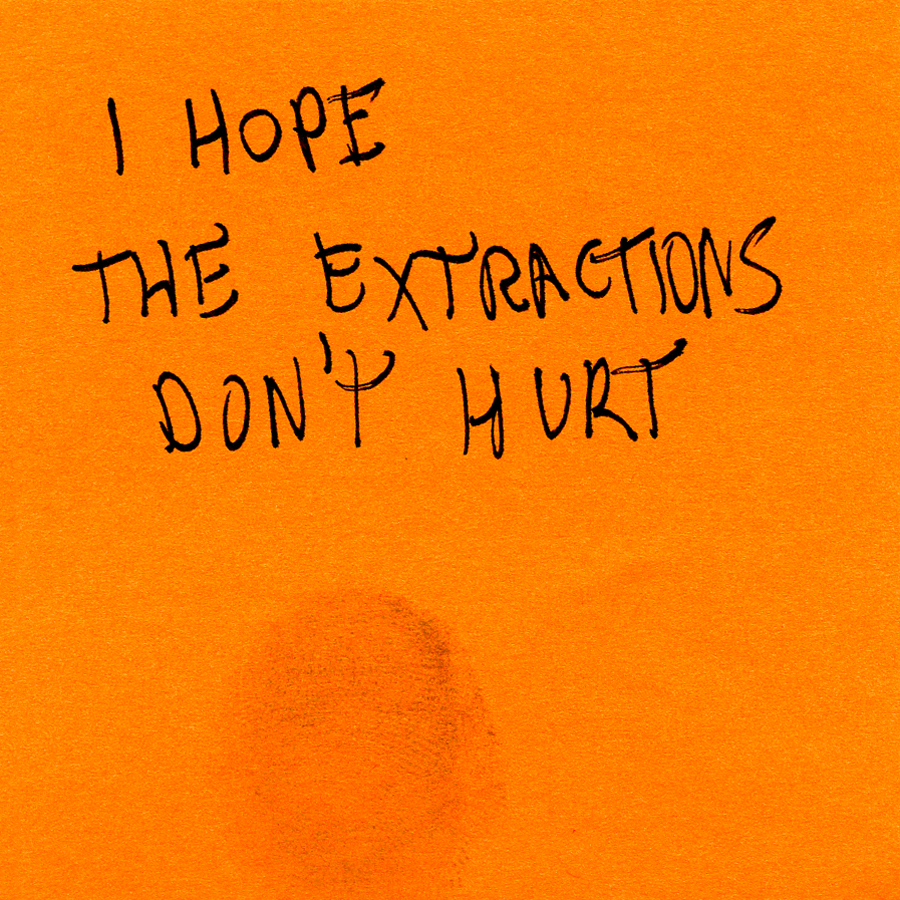 I HOPE
THE EXTRACTIONS
DON'T HURT